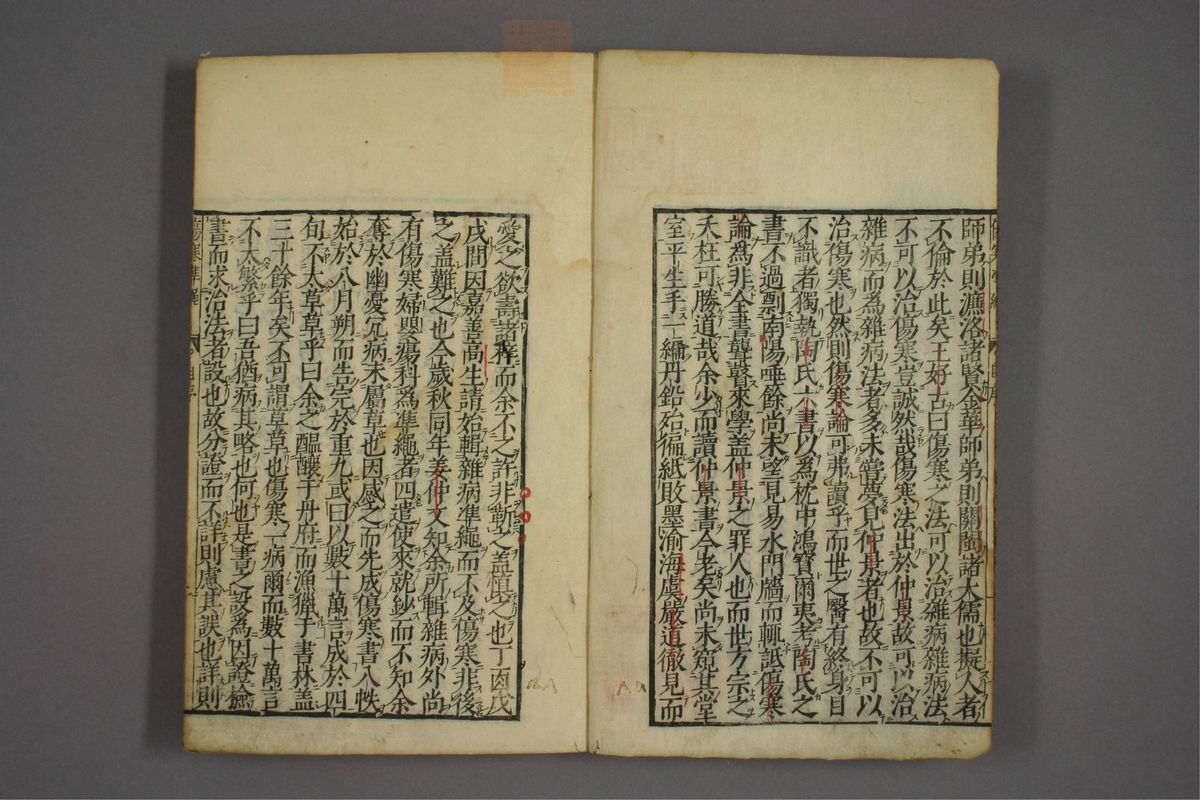 師弟則濂洛諸賢金華師弟則關閩諸大儒也擬人者
不倫於此矣王好古曰傷寒之法可以治雜病雜病法
不可以治傷寒豈誠然哉傷寒法出於仲景故可以治
雜病而為雜病法者多未嘗夢見仲景者也故不可以
治傷寒也然則傷寒論可弗讀乎而世之醫有終身目
不識者獨執陶氏六書以爲枕中鴻寶爾夷考陶氏之
書不過剽南陽唾餘尚未望見易水門牆而輒詆傷寒
論為非全書聾瞽來學盖仲景之罪人也而世方宗之
夭枉可勝道哉余少而讀仲景書今老矣尚未窺其堂
室平生手一編丹鉛殆徧紙敗墨渝海虞嚴道徹見而
愛之欲壽諸梓而余不之許非靳之盖慎之也丁酉戊
戌間因嘉善高生請始輯雜病準繩而不及傷寒非後
之盖難之也今歲秋同年姜仲文知余所輯雜病外尚
有傷寒婦嬰瘍科為準繩者四遣使來就鈔而不知余
奪於幽憂冗病未屬草也因感之而先成傷寒書八帙
始於八月朔而告完於重九或曰以數十萬言成於四
旬不太草草乎曰余之醞釀于丹府而漁獵于書林盖
三十餘年矣不可謂草草也傷寒一病爾而數十萬言
不太繁乎曰吾猶病其略也何也是書之設為因證檢
書而求治法者設也故分證而不詳則慮其誤也詳則